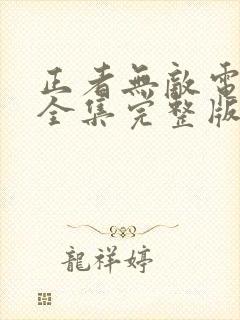 正者無敵電
全集完整版
龍祥婷